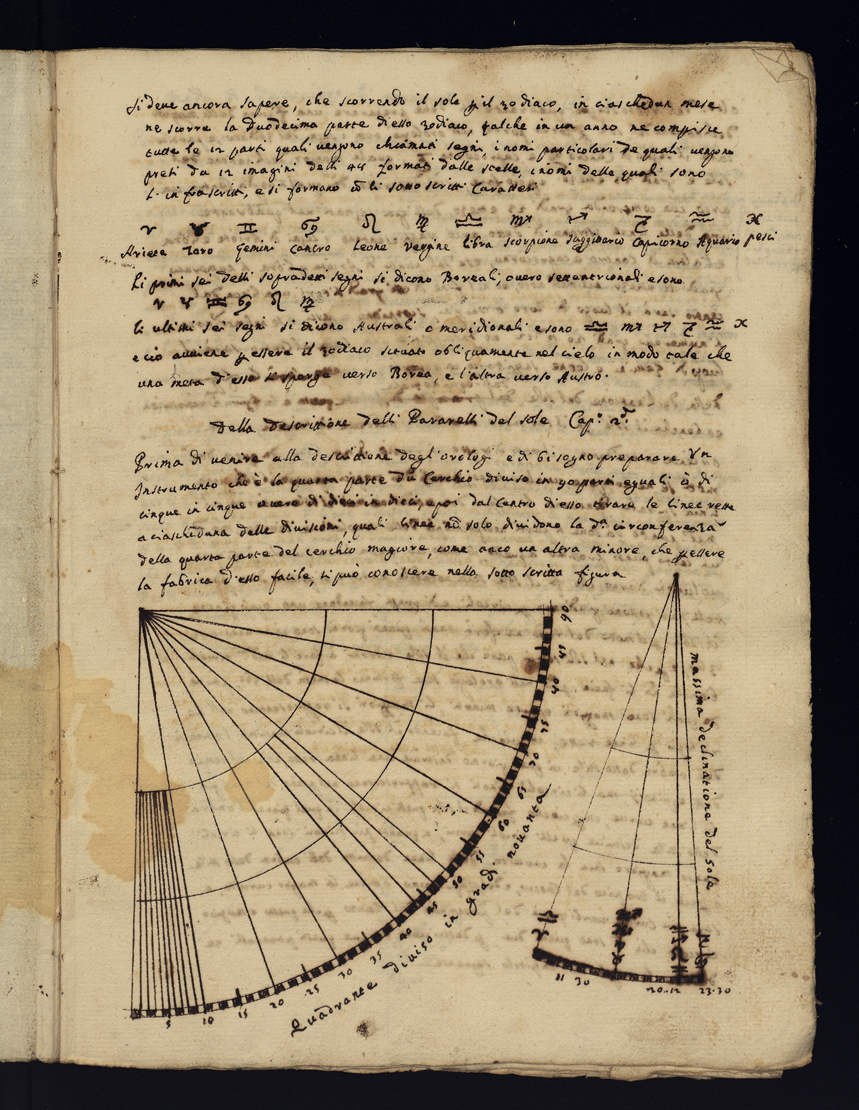 Si deve ancora sapere, che scorrendo il sole p il zodiaco, in ciaschedun mese
ne scorre la duodecima parte d'esso zodiaco, talche in un anno ne compisce
tutte le 12 parti quali vengono chiamati segni, i nomi particolari de quali vengono
presi da 12 imagini delli 48 formati dalle stelle, i nomi delle quali sono
l'infrascritti, e si formano cō li sotto scritti Caratteri
♈ ♉ ♊ ♋ ♌ ♍ ♎ ♏ ♐ ♑ ♒ ♓
Ariete Toro Gemini Cancro Leone Vergine libra scorpione Saggittario Capicorno Aquario pesci
Li primi sei delli sopradetti segni si dicono Boreali, overo settentrionali e sono
♈ ♉ ♊ ♋ ♌ ♍
li ultimi sei segni si dicono Australi o meridionali e sono ♎ ♏ ♐ ♑ ♒ ♓
e ciò avviene p essere il zodiaco situato obliquamente nel cielo in modo tale che
una metà d'esso sparge verso Borea, e l'altra verso Austro.
Della descrittione delli Pararelli del sole Cap.º 2.º
Prima di venire alla descritione degl'orologi e di bisogno preparare Un
Instrumento che è la quarta parte du Cerchio diviso in 90 parti eguali ò di
cinque in cinque overo di dieci in dieci, e poi dal Centro di esso tirare le linee rette
a ciascheduna delle divisioni, quali linee nō solo dividono la d.ª circonferenza
della quarta parte del cerchio magiore, come anco un altra minore, che p essere
la fabrica d'esso facile, si può conoscere nella sotto scritta figura
massima declinatione del sole
90
85
80
75
70
65
60
55
50
45
40
35
30
25
20
15
10
5
Quadrante diviso in gradi novanta
11 30
20.12
23.30